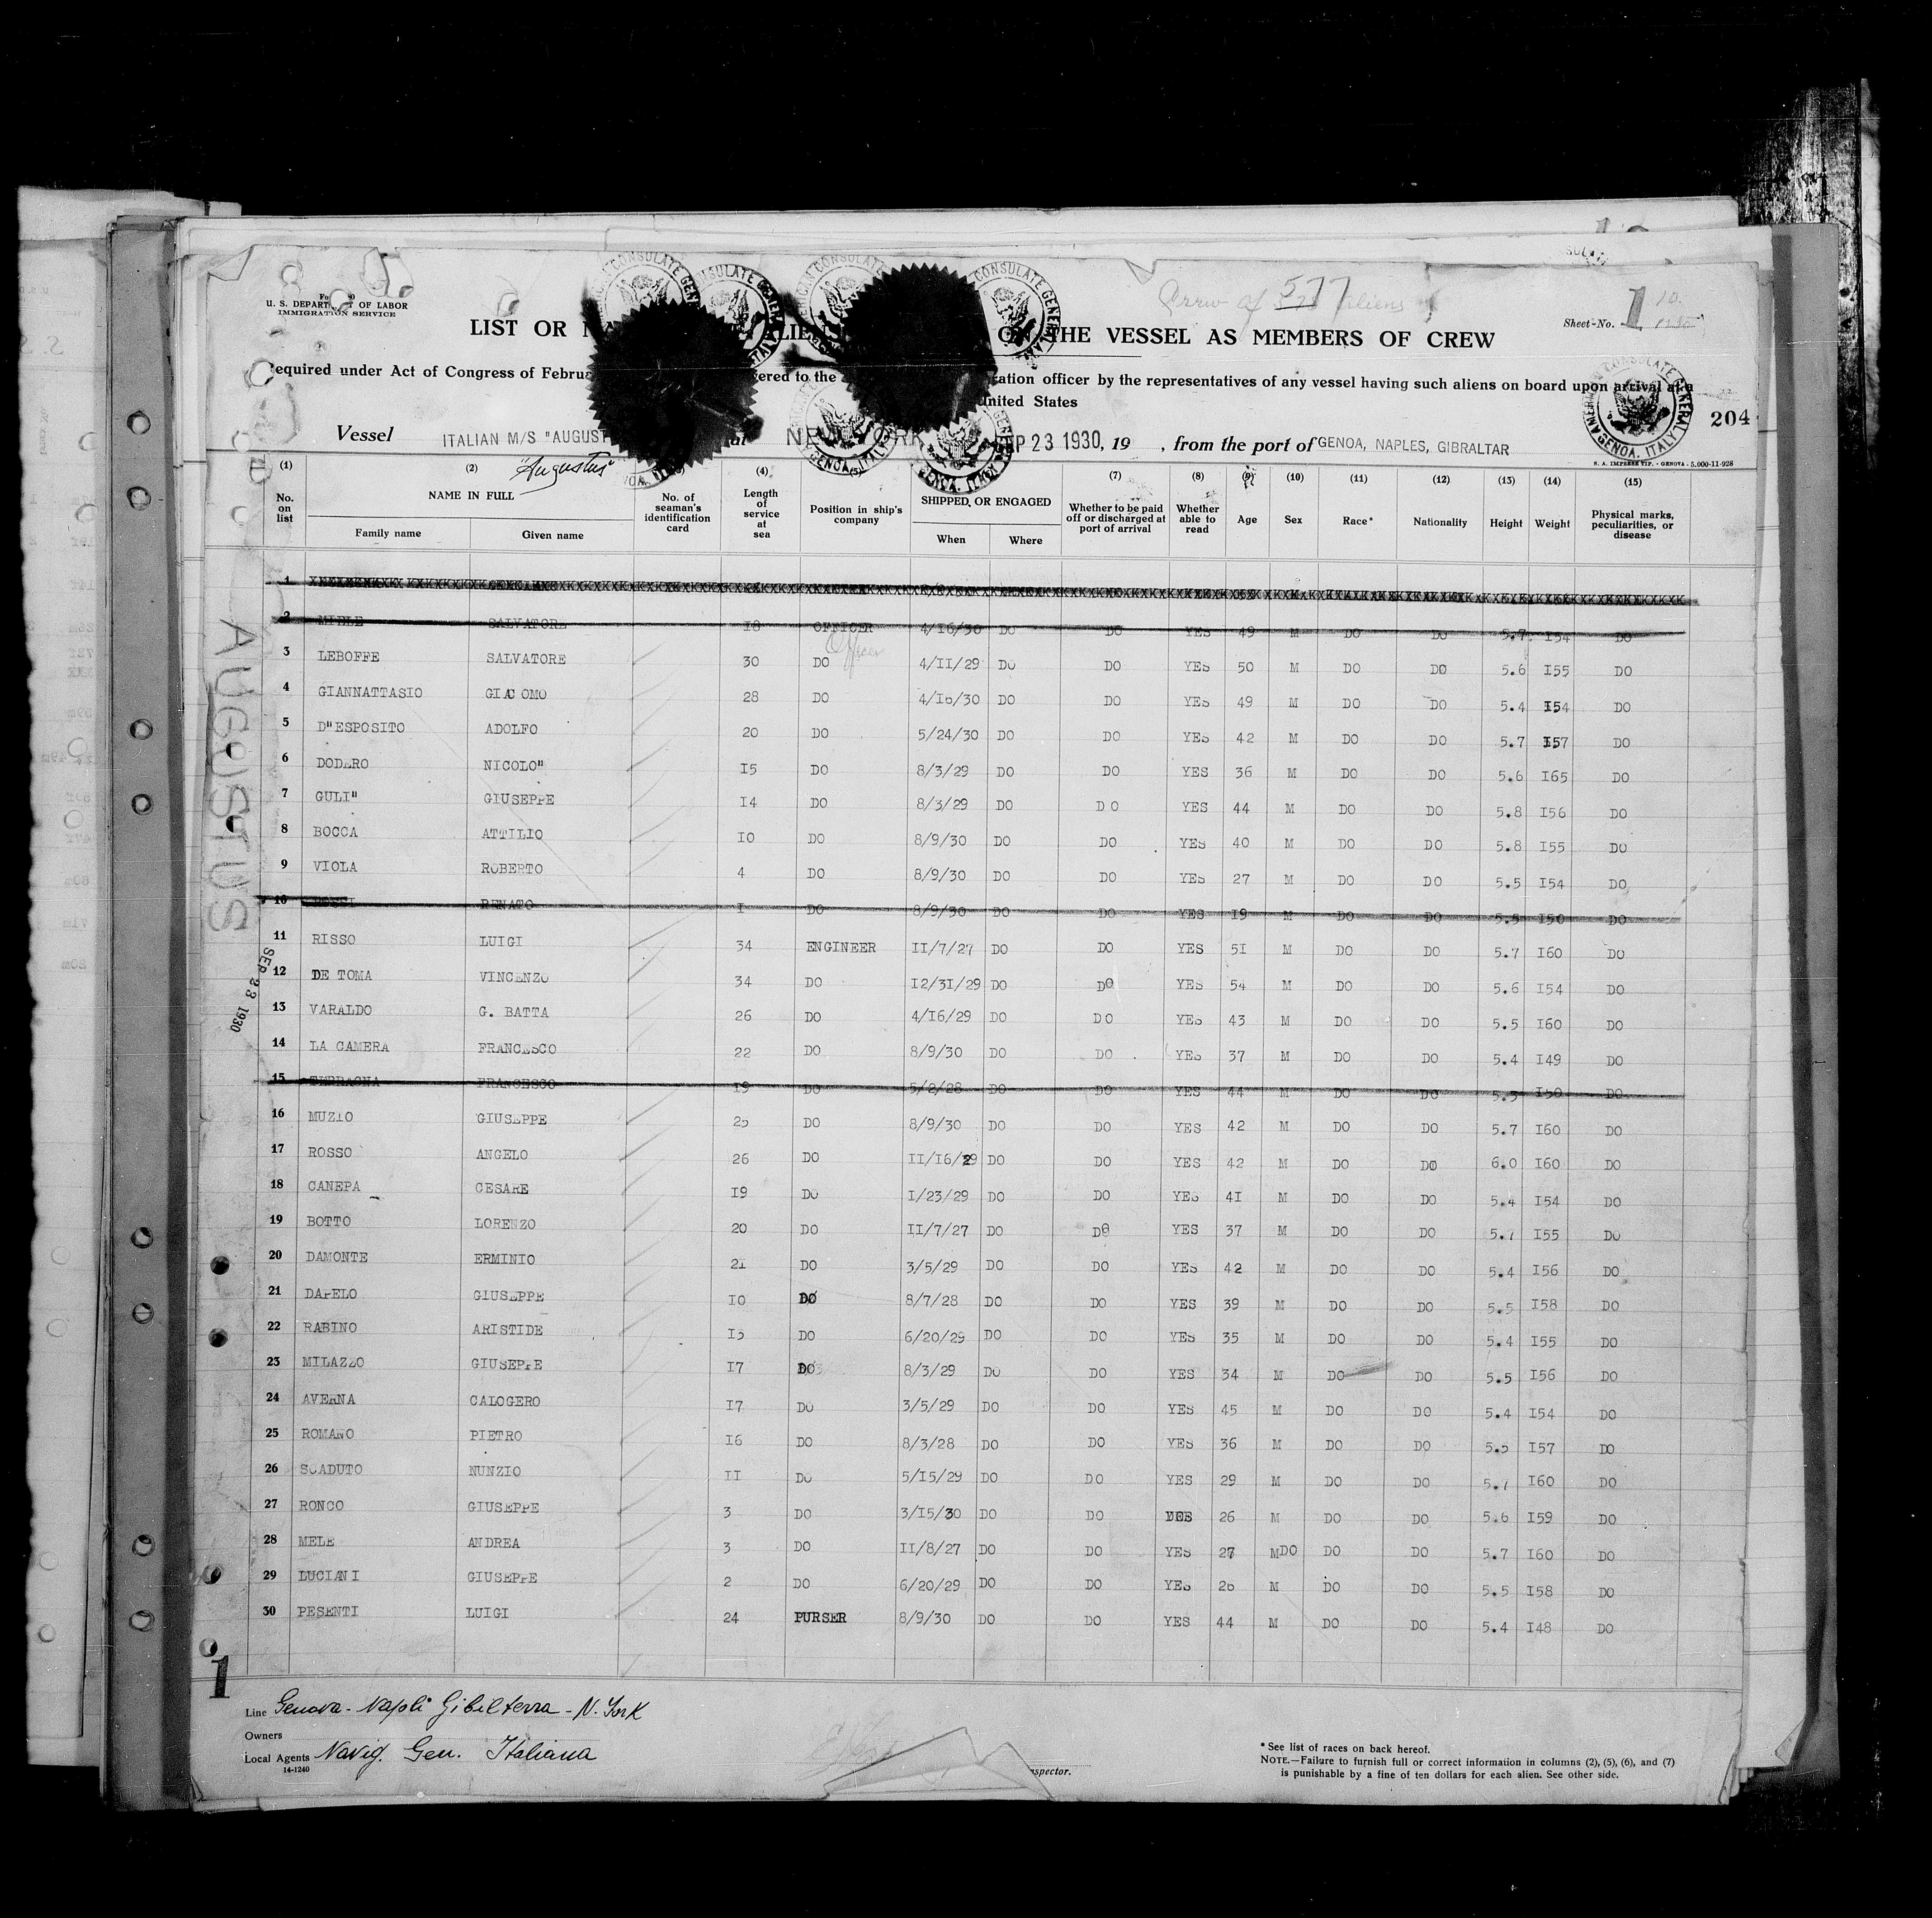 U. S. DEPARTMENT OF LABOR
IMMIGRATION SERVICE
577
Sheet No. 1
LIST OR ON THE VESSEL AS MEMBERS OF CREW
Required under Act of Congress of to the officer by the representatives of any vessel having such aliens on board upon arrival at a
United States
204
Vessel ITALIAN M/S "AUGUST at NEW YORK SEP 23 1930, 19 , from the port of GENOA, NAPLES, GIBRALTAR
"Augustus"
S. A. IMPRESE TIP. - GENOVA - 5.000-11-928
(1) (2) (4) (7) (8) (9) (10) (11) (12) (13) (14) (15)
No. on list NAME IN FULL Family name Given name No. of seaman's identification card Length of service at sea Position in ship's company SHIPPED OR ENGAGED When Where Whether to be paid off or discharged at port of arrival Whether able to read Age Sex Race* Nationality Height Weight Physical marks, peculiarities, or disease
1
2 SALVATORE 18 OFFICER 4/16/30 DO DO YES 49 M DO DO 5.7 I54 DO
3 LEBOFFE SALVATORE 30 DO Officer 4/II/29 DO DO YES 50 M DO DO 5.6 I55 DO
4 GIANNATTASIO GIACOMO 28 DO 4/16/30 DO DO YES 49 M DO DO 5.4 I54 DO
5 D"ESPOSITO ADOLFO 20 DO 5/24/30 DO DO YES 42 M DO DO 5.7 I57 DO
6 DODERO NICOLO" I5 DO 8/3/29 DO DO YES 36 M DO DO 5.6 I65 DO
7 GULI" GIUSEPPE I4 DO 8/3/29 DO DO YES 44 M DO DO 5.8 I56 DO
8 BOCCA ATTILIO IO DO 8/9/30 DO DO YES 40 M DO DO 5.8 I55 DO
9 VIOLA ROBERTO 4 DO 8/9/30 DO DO YES 27 M DO DO 5.5 I54 DO
10 RENATO I DO 8/9/30 DO DO YES I9 M DO DO 5.5 I50 DO
11 RISSO LUIGI 34 ENGINEER II/7/27 DO DO YES 5I M DO DO 5.7 I60 DO
12 DE TOMA VINCENZO 34 DO I2/3I/29 DO DO YES 54 M DO DO 5.6 I54 DO
13 VARALDO G. BATTA 26 DO 4/I6/29 DO DO YES 43 M DO DO 5.5 I60 DO
14 LA CAMERA FRANCESCO 22 DO 8/9/30 DO DO YES 37 M DO DO 5.4 I49 DO
15 TERRAGNA FRANCESCO I9 DO 5/2/28 DO DO YES 44 M DO DO 5.5 I50 DO
16 MUZIO GIUSEPPE 25 DO 8/9/30 DO DO YES 42 M DO DO 5.7 I60 DO
17 ROSSO ANGELO 26 DO II/I6/29 DO DO YES 42 M DO DO 6.0 I60 DO
18 CANEPA CESARE I9 DO I/23/29 DO DO YES 4I M DO DO 5.4 I54 DO
19 BOTTO LORENZO 20 DO II/7/27 DO DO YES 37 M DO DO 5.7 I55 DO
20 DAMONTE ERMINIO 2I DO 3/5/29 DO DO YES 42 M DO DO 5.4 I56 DO
21 DAPELO GIUSEPPE IO DO 8/7/28 DO DO YES 39 M DO DO 5.5 I58 DO
22 RABINO ARISTIDE I5 DO 6/20/29 DO DO YES 35 M DO DO 5.4 I55 DO
23 MILAZZO GIUSEPPE I7 DO 8/3/29 DO DO YES 34 M DO DO 5.5 I56 DO
24 AVERNA CALOGERO I7 DO 3/5/29 DO DO YES 45 M DO DO 5.4 I54 DO
25 ROMANO PIETRO I6 DO 8/3/28 DO DO YES 36 M DO DO 5.5 I57 DO
26 SCADUTO NUNZIO II DO 5/I5/29 DO DO YES 29 M DO DO 5.7 I60 DO
27 RONCO GIUSEPPE 3 DO 3/I5/30 DO DO YES 26 M DO DO 5.6 I59 DO
28 MELE ANDREA 3 DO II/8/27 DO DO YES 27 M DO DO DO 5.7 I60 DO
29 LUCIANI GIUSEPPE 2 DO 6/20/29 DO DO YES 26 M DO DO 5.5 I58 DO
30 PESENTI LUIGI 24 PURSER 8/9/30 DO DO YES 44 M DO DO 5.4 I48 DO
AUGUSTUS
SEP 23 1930
1
Line Genova - Napoli Gibilterra - N. York
Owners
Local Agents Navig. Gen. Italiana
14-1240
* See list of races on back hereof.
NOTE.—Failure to furnish full or correct information in columns (2), (5), (6), and (7)
is punishable by a fine of ten dollars for each alien. See other side.